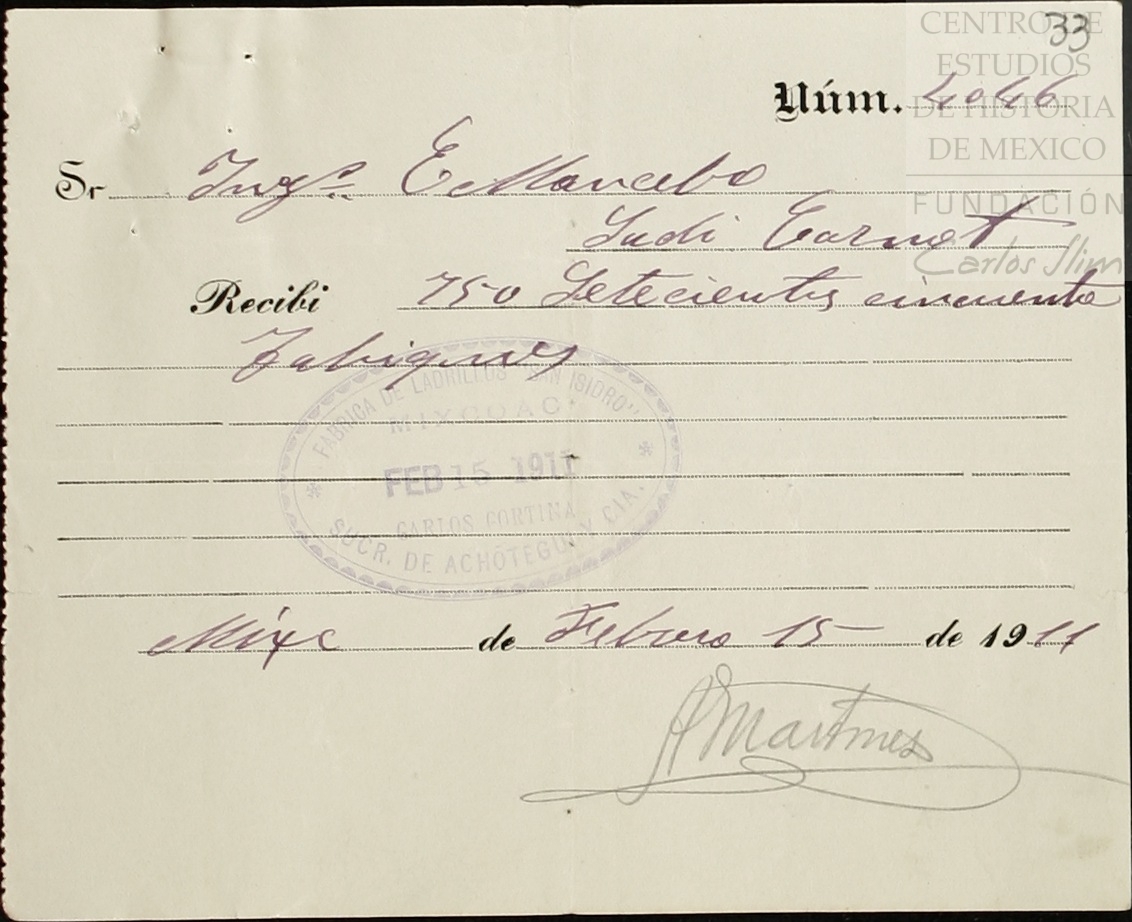 33
CENTRO DE
ESTUDIOS
DE HISTORIA
DE MEXICO
FUNDACIÓN
Carlos Slim
Núm. 4046
Sr Ingo. E. Mancebo
Sadi Carnot
Recibi 750 Setecientos cincuenta
Tabiques
FABRICA DE LADRILLOS "SAN ISIDRO"
MIXCOAC
FEB 15 1911
CARLOS CORTINA
SUCR. DE ACHÓTEGUI Y CIA.
Mixc de Febrero 15 de 1911
Martinez